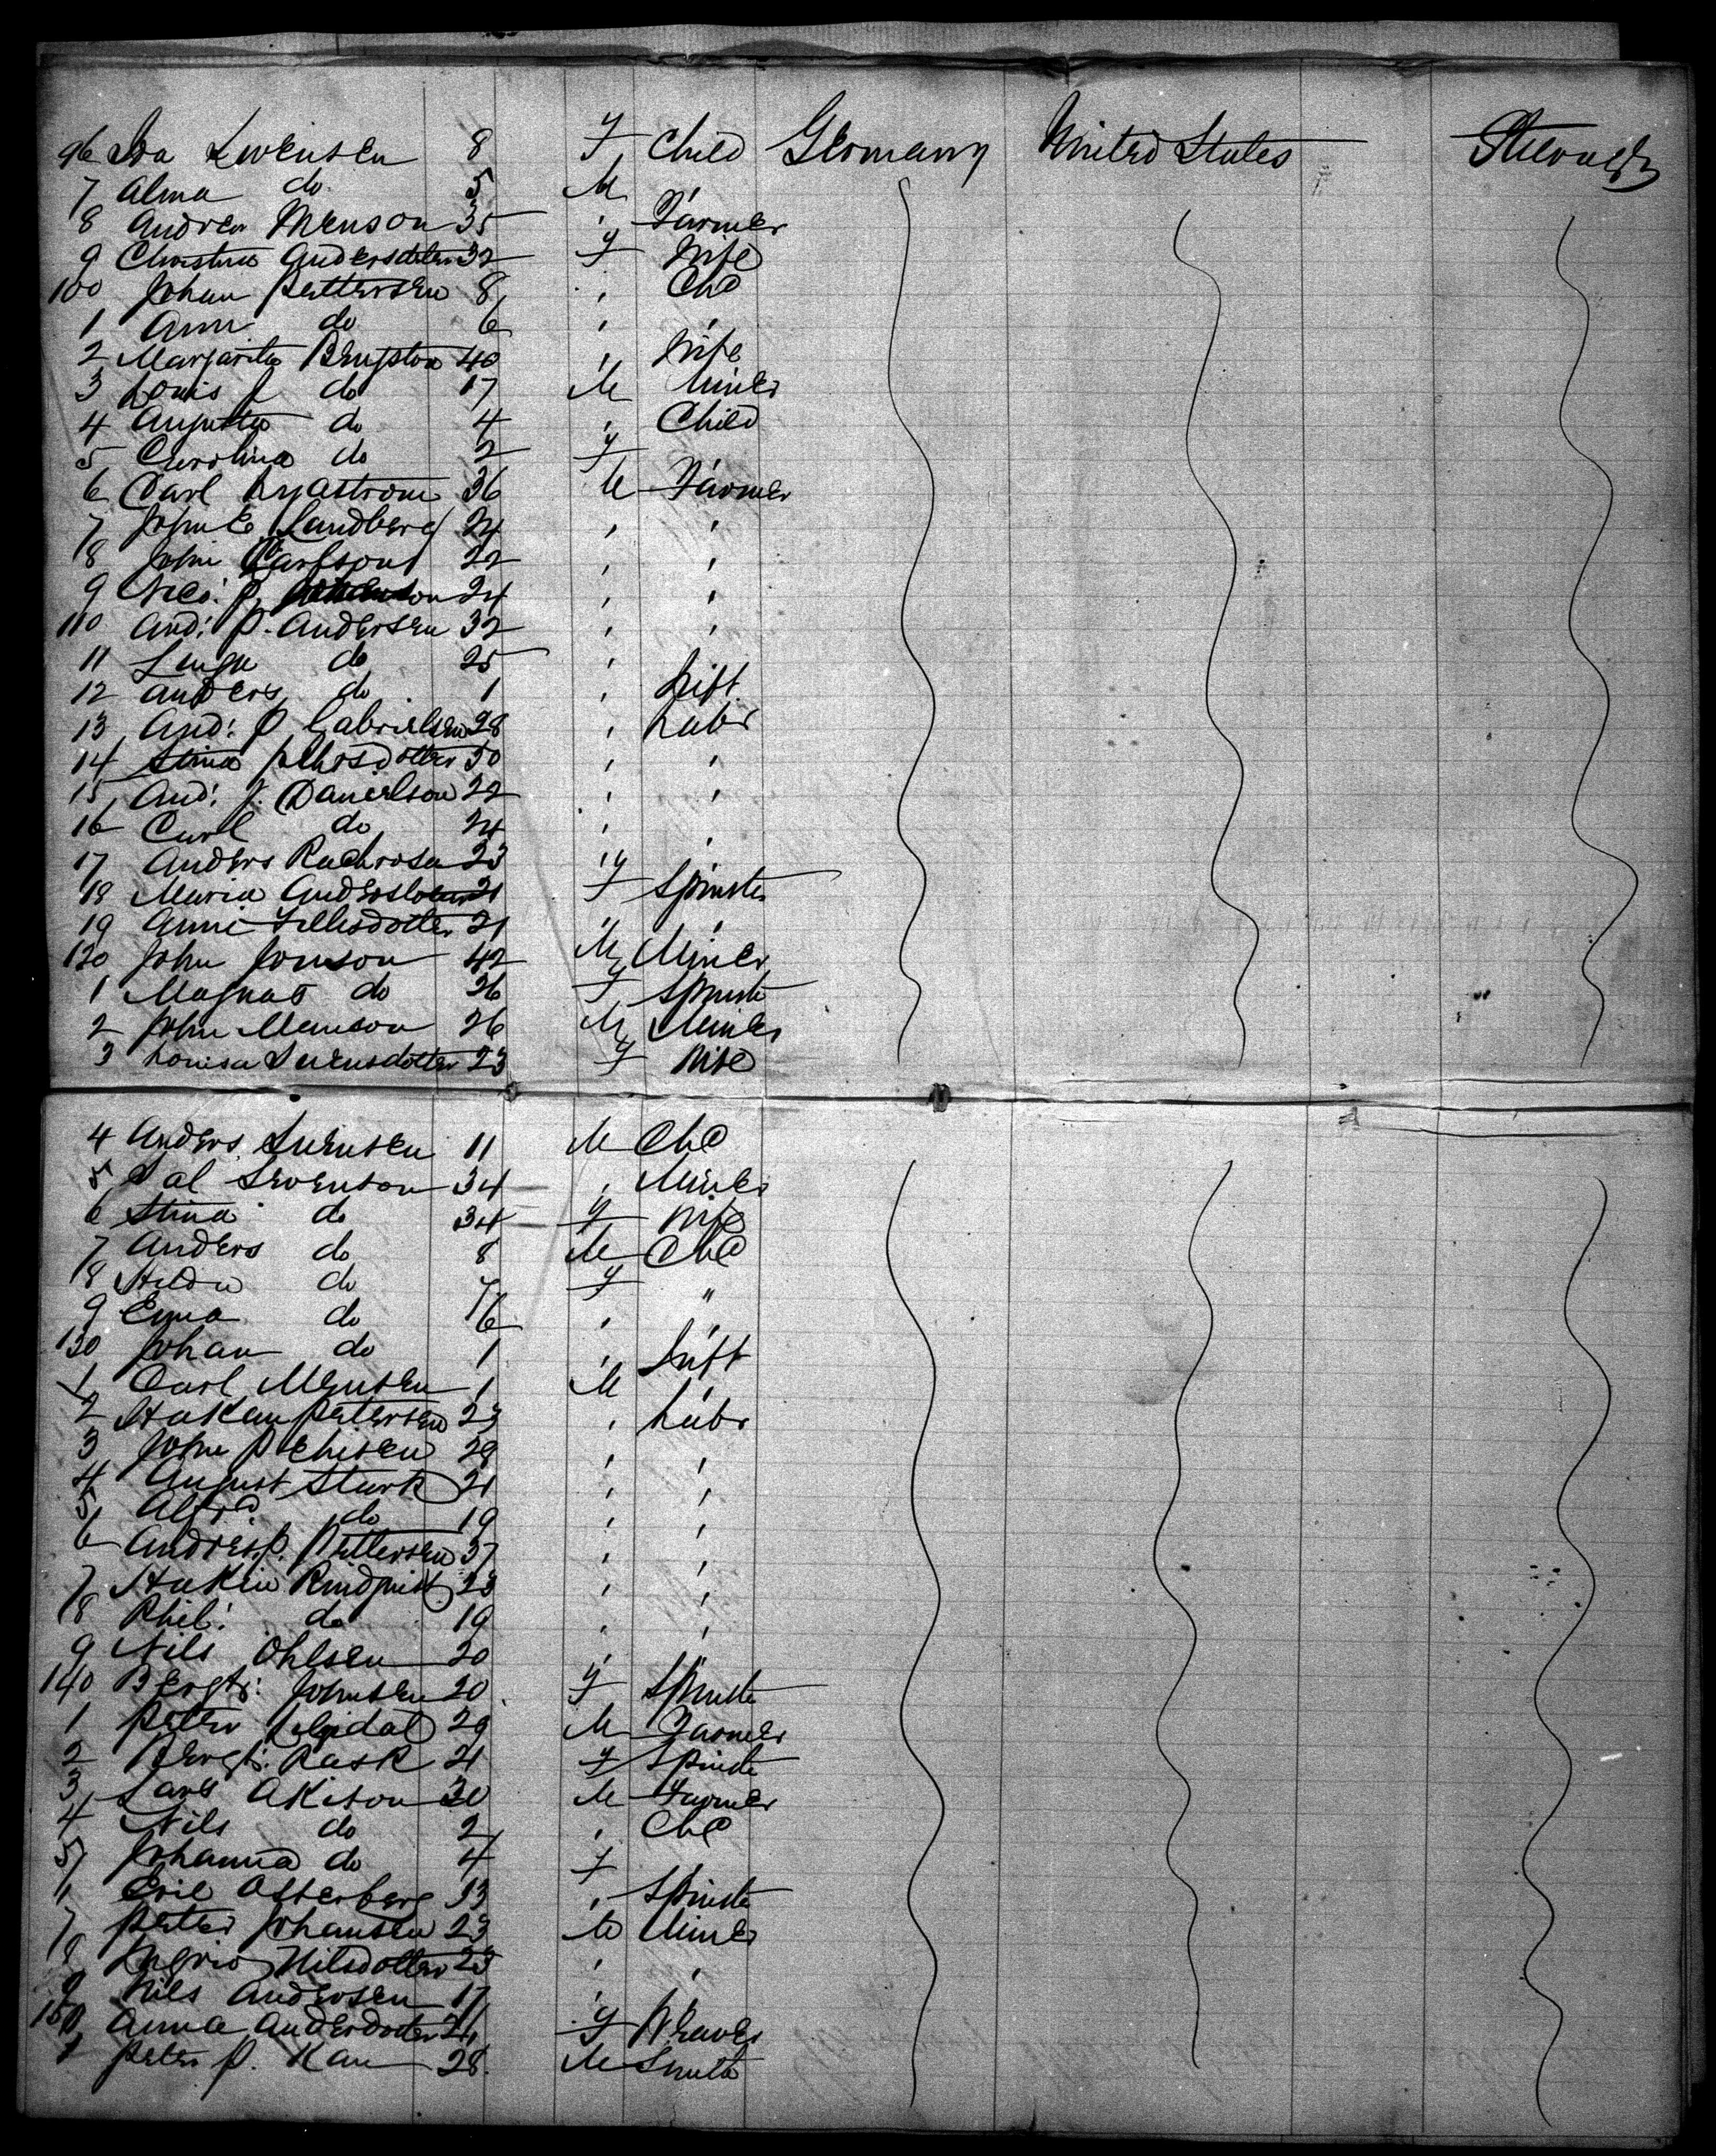 96 Ida Swensen 8 F Child Germany United States Steerage
7 Alma do 5 M
8 Andrew Menson 35 " Farmer
9 Christina Andersdotter 32 F Wife
100 Johan Pettersen 8 " Chd
1 Ann do 6 " "
2 Margarita 40 " Wife
3 Louis J do 17 M Miner
4 Augusta do 4 " Child
5 Carolina do 2 F "
6 Carl 36 M Farmer
7 John E. Sandberg 24 " "
8 John Carlson 22 " "
9 P. 24 " "
110 And: P. Andersen 32 " "
11 do 25 "
12 Anders do 1 " Inft.
13 And: P Gabrielsen 28 " Labr
14 Stina 50 " "
15 And: J. Danielson 22 " "
16 Carl do 24 " "
17 Anders 23 "
18 Maria 21 F Spinster
19 Anne 21 " "
120 John Jonson 42 M Miner
1 Magnas do 26 F Spinste
2 John Manson 26 M Miner
3 Louisa Swensdotter 23 F Wife
4 Anders Swensen 11 M Chd
5 Sal Swenson 34 " Miner
6 Stina do 34 F Wife
7 Anders do 8 M Chd
8 Hilda do 7 F "
9 Emma do 6 " "
130 Johan do 1 " Inft
1 Carl Mensen 1 M "
2 Hakan Petersen 23 " Labr
3 John P 29 " "
4 August Stark 21 " "
5 Alfrd. do 19 " "
6 Andres. P. Pettersen 37 " "
7 Hakin 23 " "
8 Phil: do 19 " "
9 Nils Ohlsen 20 " "
140 Bengta: Johnsen 20 F Spinste
1 Peter 29 M Farmer
2 Bengta: Rask 21 F Spinste
3 Lars Akison 30 M Farmer
4 Nils do 2 " Chd
5 Johanna do 4 F "
Osterberg 33 " Spinste
7 Peter Johansen 23 M Miner
8 Ingrid Nilsdotter 23 " "
9 Nils Andersen 17 "
150 Anna Andersdotter 21 F Weaver
1 Peter P. Kan 28 M Smith